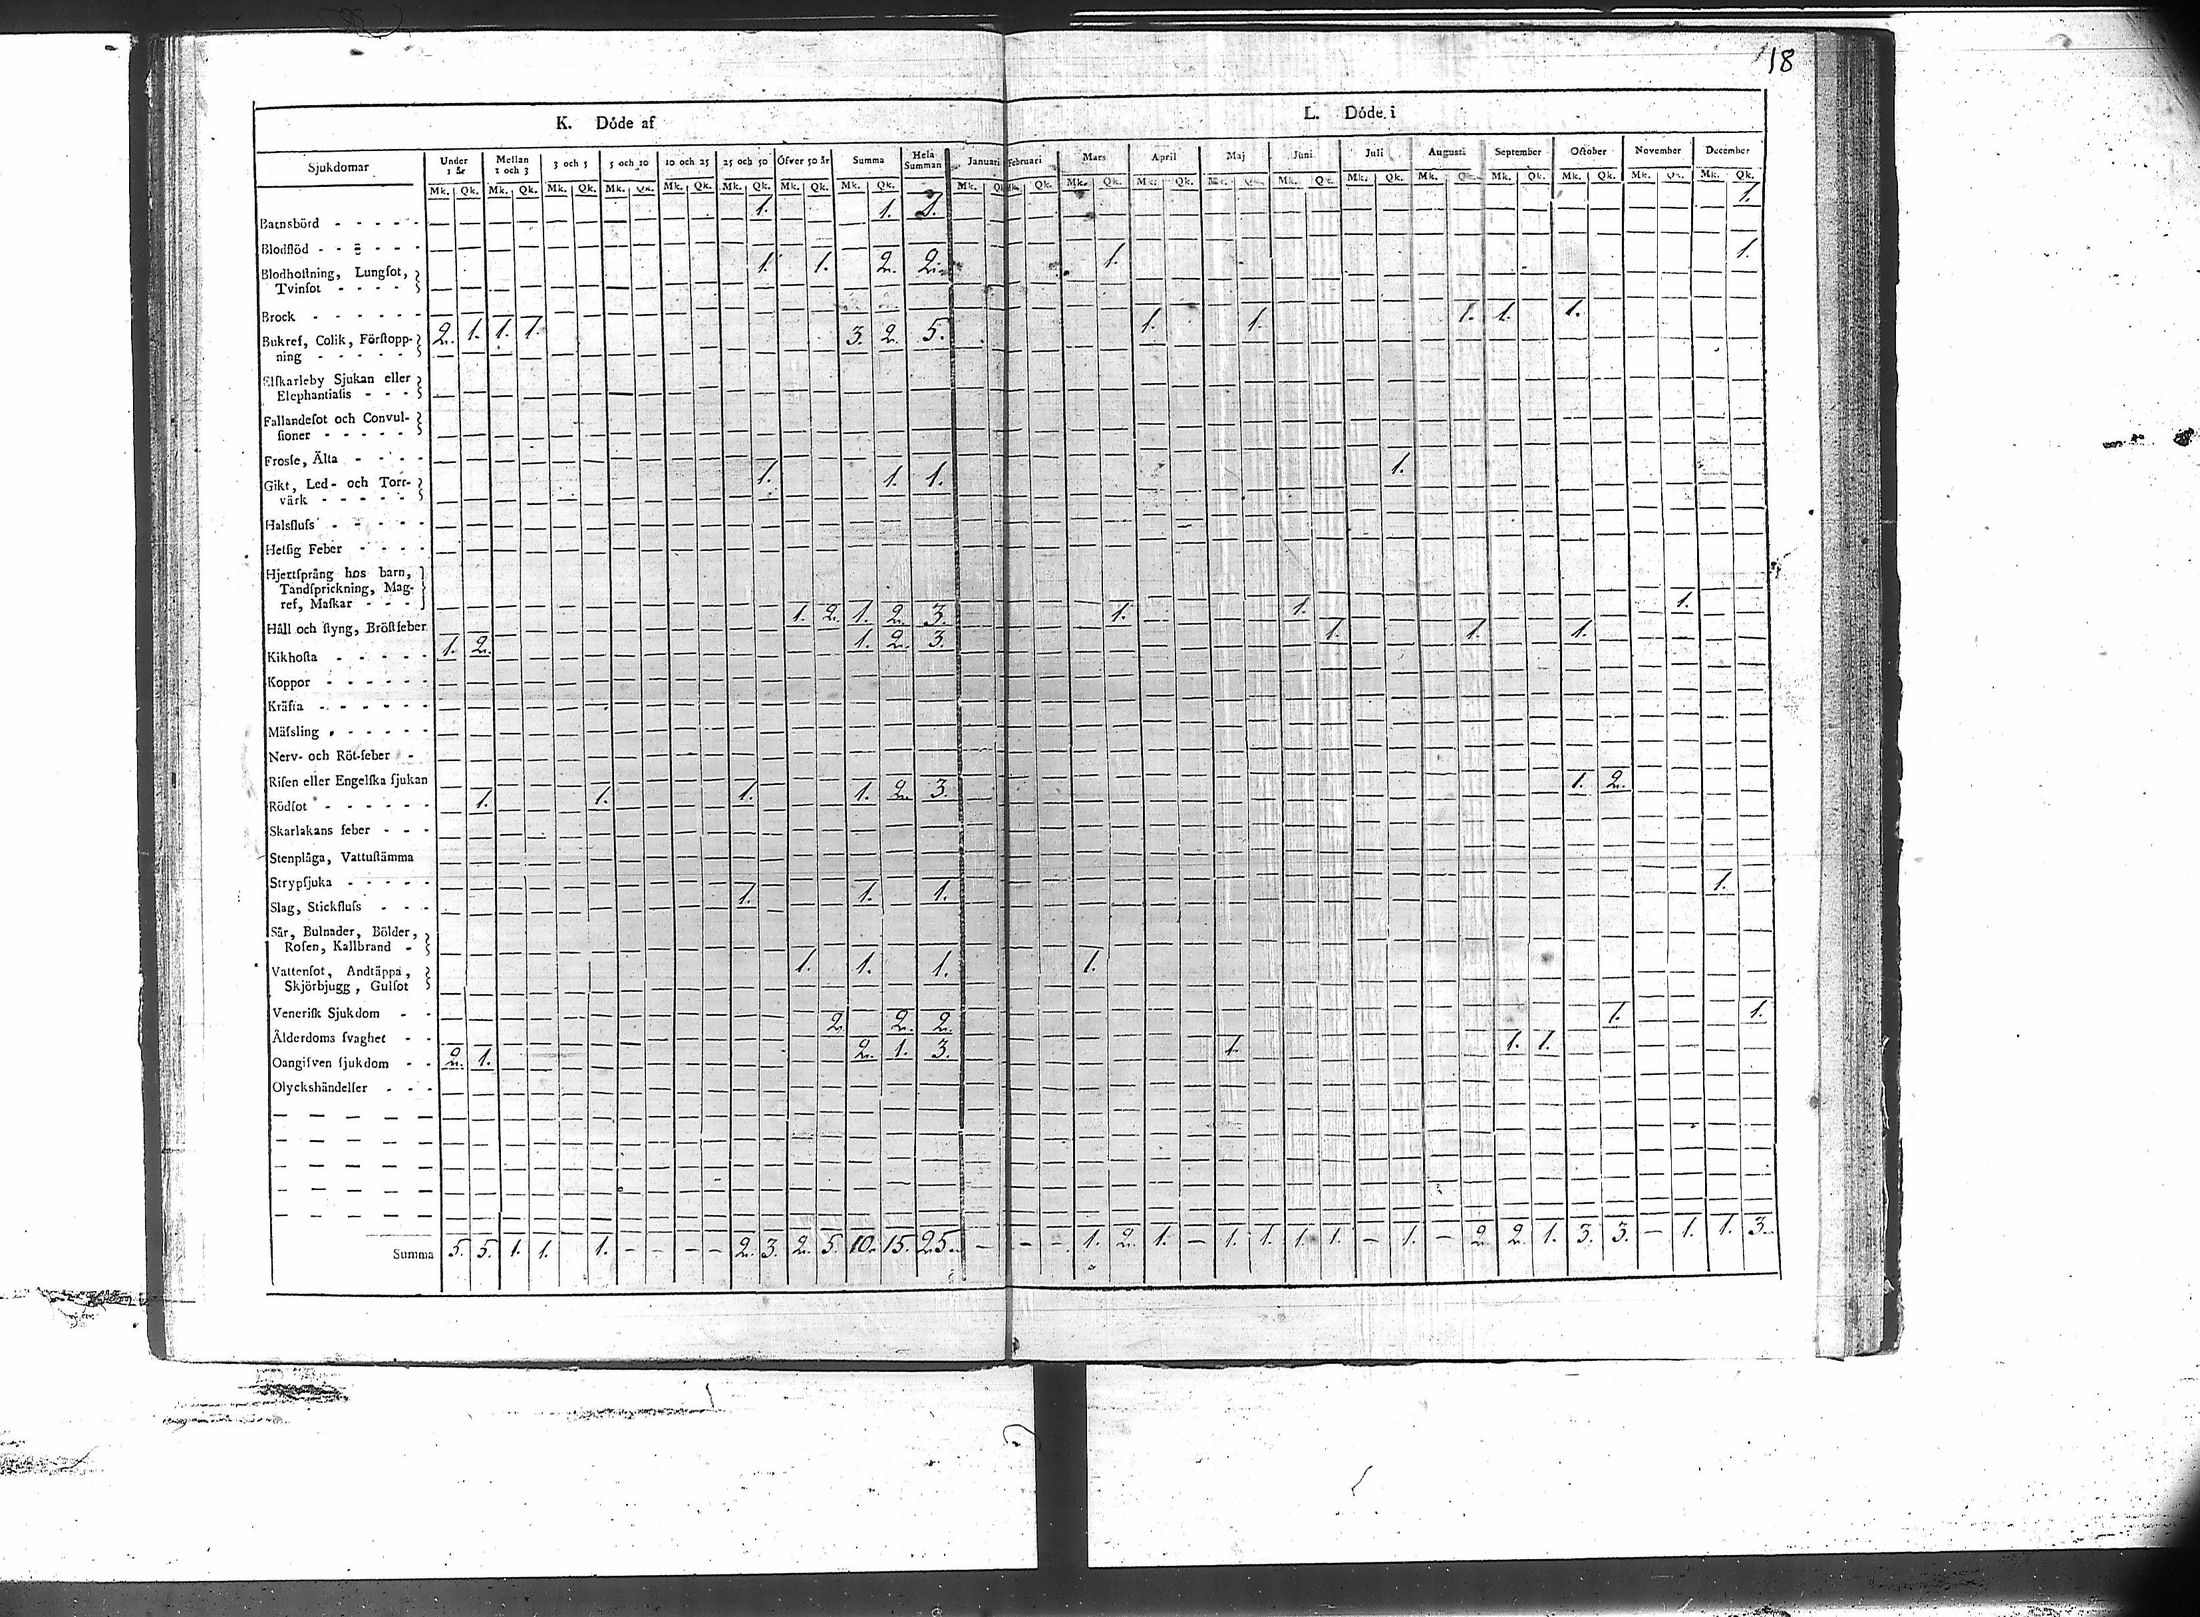 18
K. Döde af
L. Döde i
Sjukdomar Under 1 år Mellan 1 och 3 3 och 5 5 och 10 10 och 25 25 och 50 Öfver 50 år Summa Hela Summan Januari Februari Mars April Maj Juni Juli Augusti September October November December
Mk. Qk. Mk. Qk. Mk. Qk. Mk. Qk. Mk. Qk. Mk. Qk. Mk. Qk. Mk. Qk. Mk. Qk. Mk. Qk. Mk. Qk. Mk. Qk. Mk. Qk. Mk. Qk. Mk. Qk. Mk. Qk. Mk. Qk. Mk. Qk. Mk. Qk. Mk. Qk.
Barnsbörd - - - - - 1. 1. 1. 1.
Blodflöd - - - - -
Blodhoſtning, Lungſot,
Tvinſot - - - - 1. 1. 2. 2. 1. 1.
Brock - - - - - -
Bukref, Colik, Förſtopp-
ning - - - - - 2. 1. 1. 1. 3. 2. 5. 1. 1. 1. 1. 1.
Elſkarleby Sjukan eller
Elephantiaſis - - -
Fallandeſot och Convul-
ſioner - - - - -
Froſſe, Älta - - - -
Gikt, Led- och Torr-
värk - - - - - 1. 1. 1. 1.
Halsfluſs - - - - -
Hetſig Feber - - - -
Hjertſprång hos barn,
Tandſprickning, Mag-
ref, Maſkar - - -
Håll och ſtyng, Bröſtfeber 1. 2. 1. 2. 3. 1. 1. 1.
Kikhoſta - - - - - 1. 2. 1. 2. 3. 1. 1. 1.
Koppor - - - - - -
Kräfta - - - - - -
Mäſsling - - - - - -
Nerv- och Röt-feber -
Riſen eller Engelſka ſjukan
Rödſot - - - - - - 1. 1. 1. 1. 2. 3. 1. 2.
Skarlakans feber - - -
Stenplåga, Vattuſtämma
Strypſjuka - - - - -
Slag, Stickfluſs - - - 1. 1. 1. 1.
Sår, Bulnader, Bölder,
Roſen, Kallbrand -
Vattenſot, Andtäppa,
Skjörbjugg, Gulſot 1. 1. 1. 1.
Veneriſk Sjukdom - -
Ålderdoms ſvaghet - - 2. 2. 2. 1. 1.
Oangifven ſjukdom - - 2. 1. 2. 1. 3. 1. 1. 1.
Olyckshändelſer - - -
Summa 5. 5. 1. 1. 1. - - - - 2. 3. 2. 5. 10. 15. 25. - - - 1. 2. 1. - 1. 1. 1. 1. - 1. - 2. 2. 1. 3. 3. - 1. 1. 3.